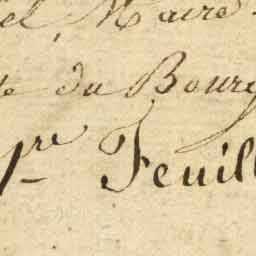 el, Maire
te du Bourg
1re Feuill